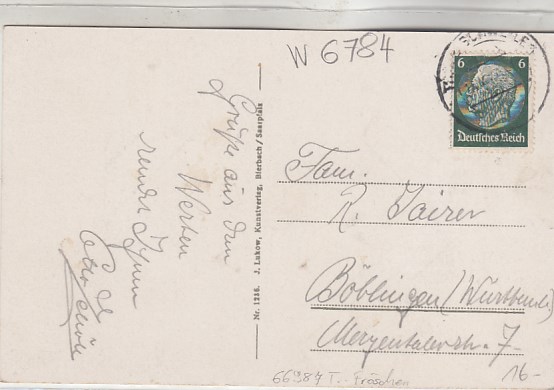 W 6784
SCHWEILER
6 6
Deutsches Reich
Grüße aus dem
Westen
sendet Ihnen
Nr. 1216. J. Lukow, Kunstverlag, Bierbach / Saarpfalz
Fam.
R. Jairer
Böblingen / Württembg.
Mergentalerstr. 7.
66987 T.-Fröschen
16-